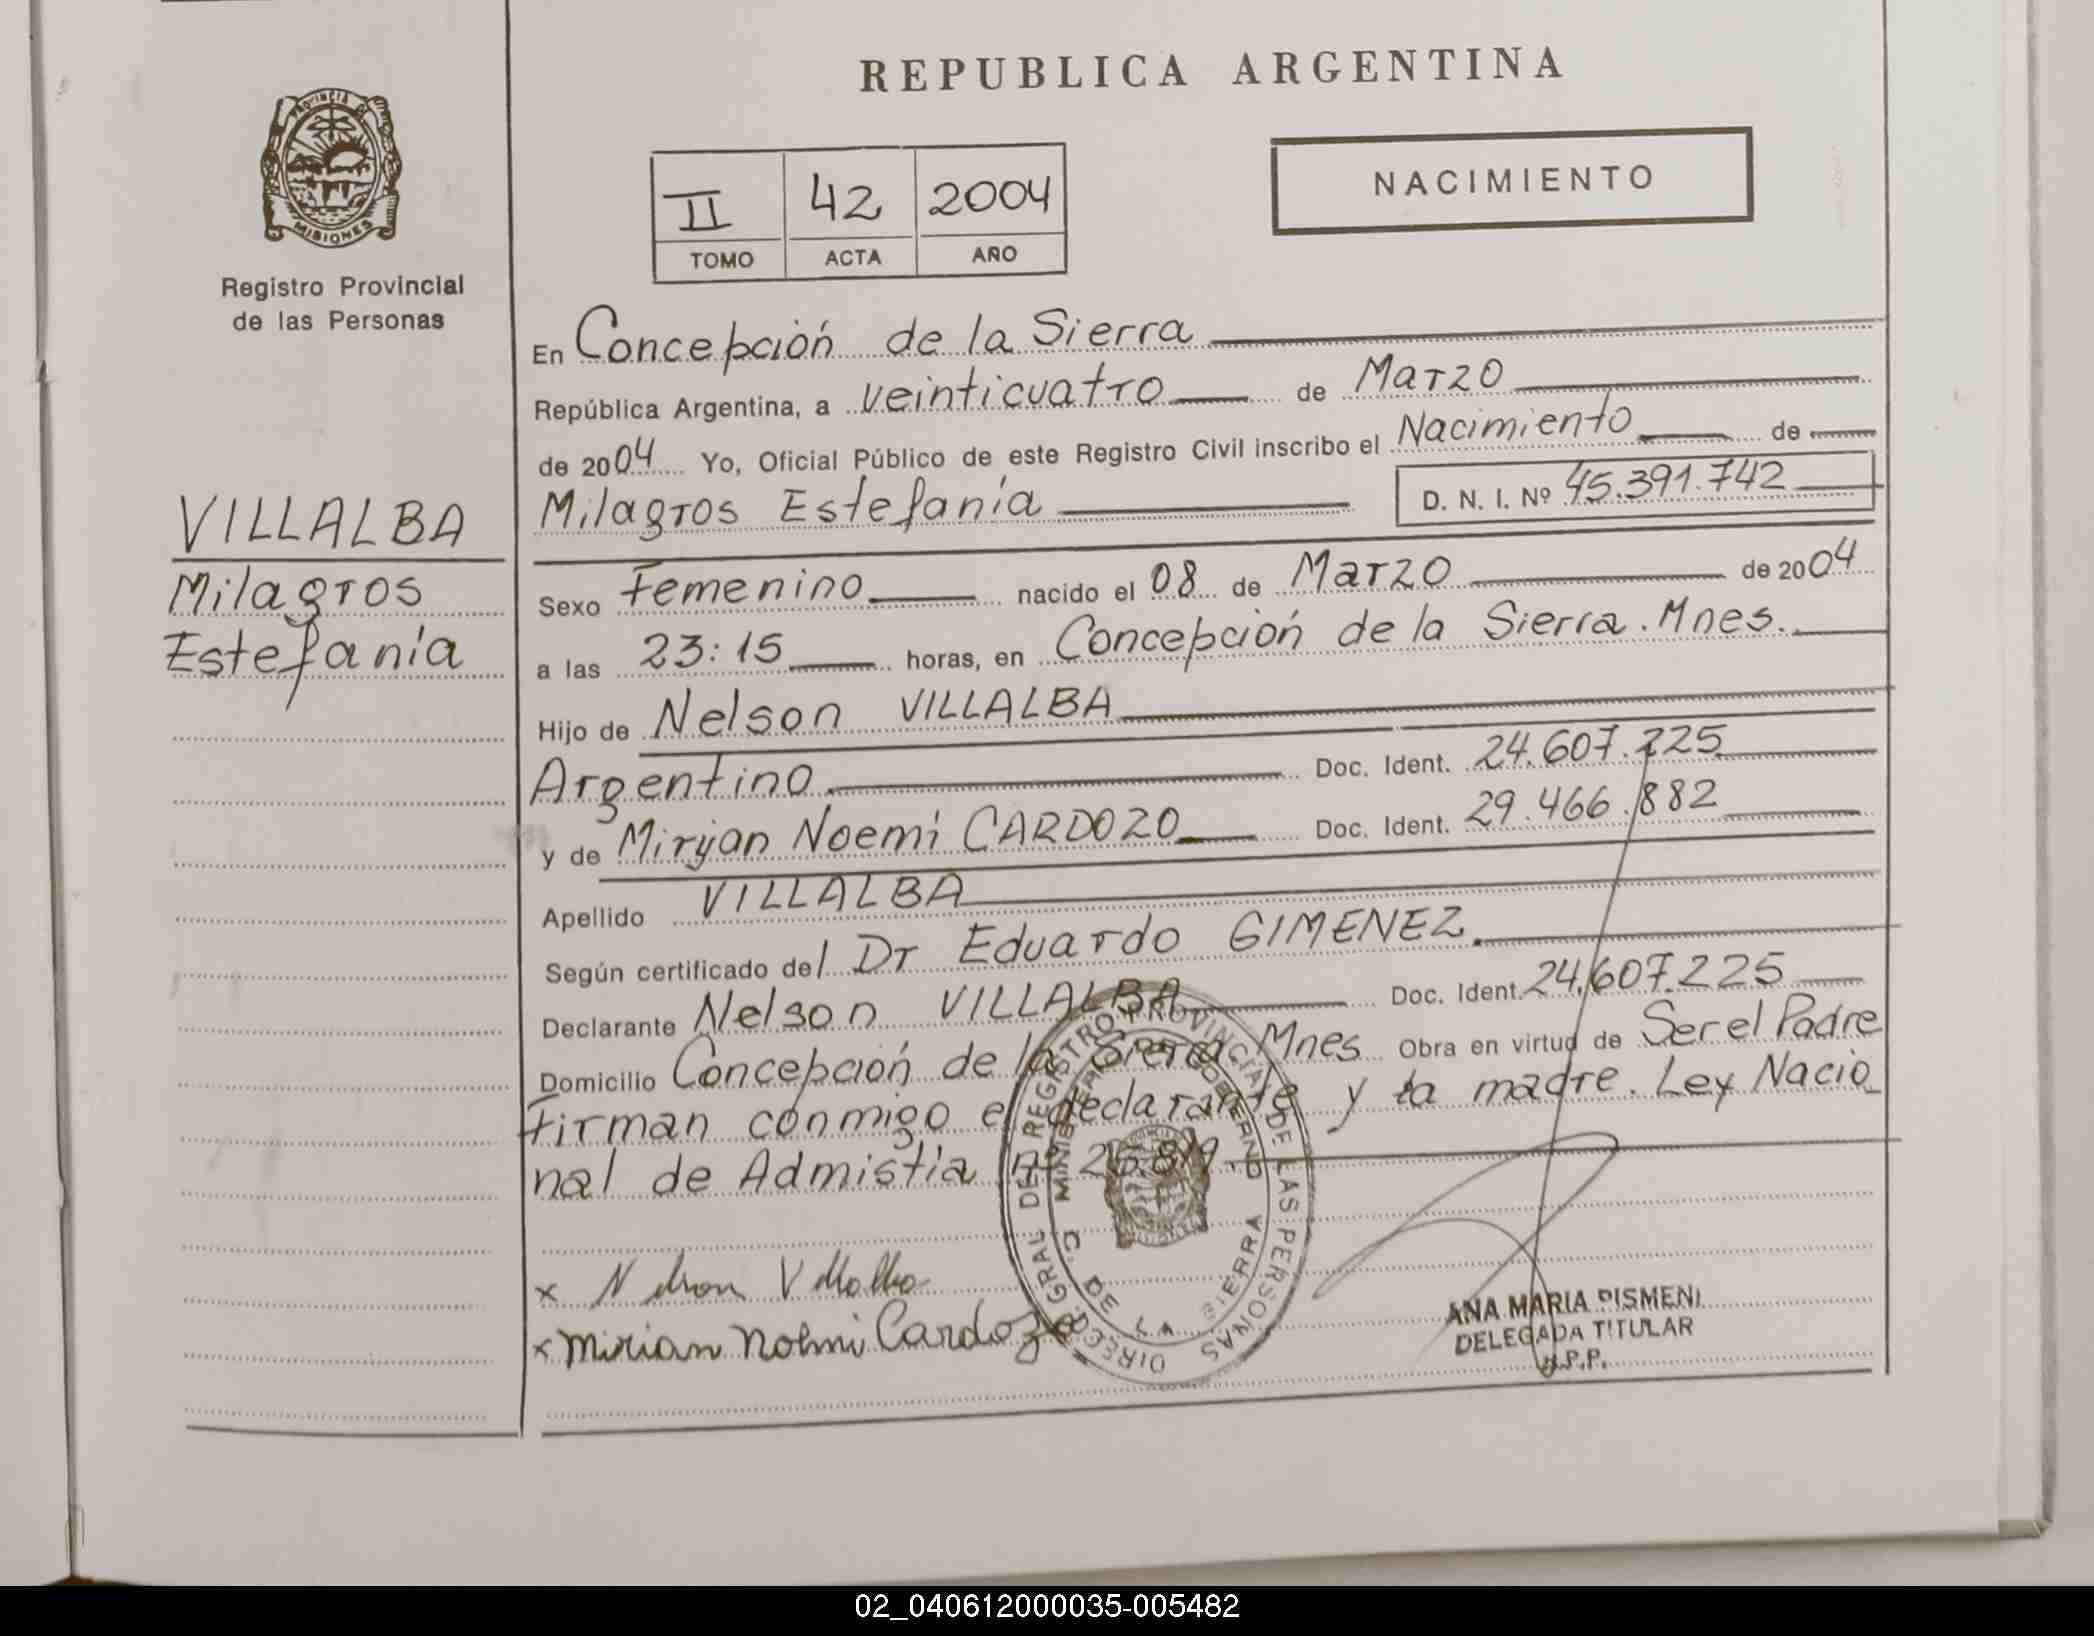 REPUBLICA ARGENTINA
PROVINCIA DE
MISIONES
Registro Provincial
de las Personas
II 42 2004
TOMO ACTA AÑO
NACIMIENTO
VILLALBA
Milagros
Estefanía
En Concepción de la Sierra
República Argentina, a veinticuatro de Marzo
de 2004 Yo, Oficial Público de este Registro Civil inscribo el Nacimiento de
Milagros Estefanía D. N. I. Nº 45.391.742
Sexo Femenino nacido el 08 de Marzo de 2004
a las 23:15 horas, en Concepción de la Sierra. Mnes.
Hijo de Nelson VILLALBA
Argentino Doc. Ident. 24.607.225
y de Miryan Noemi CARDOZO Doc. Ident. 29.466.882
Apellido VILLALBA
Según certificado del Dr Eduardo GIMENEZ
Declarante Nelson VILLALBA Doc. Ident. 24.607.225
Domicilio Concepción de la Sierra, Mnes Obra en virtud de Ser el Padre
Firman conmigo el declarante y la madre. Ley Nacio
nal de Admistia Nº 25.819.
x Nelson Villalba
x Mirian Nohmi Cardozo
DIREC. GRAL. DE REGISTRO PROVINCIAL DE LAS PERSONAS
MINISTERIO GOBIERNO
C. DE LA SIERRA
ANA MARIA PISMENI
DELEGADA TITULAR
R.P.P.
02_040612000035-005482